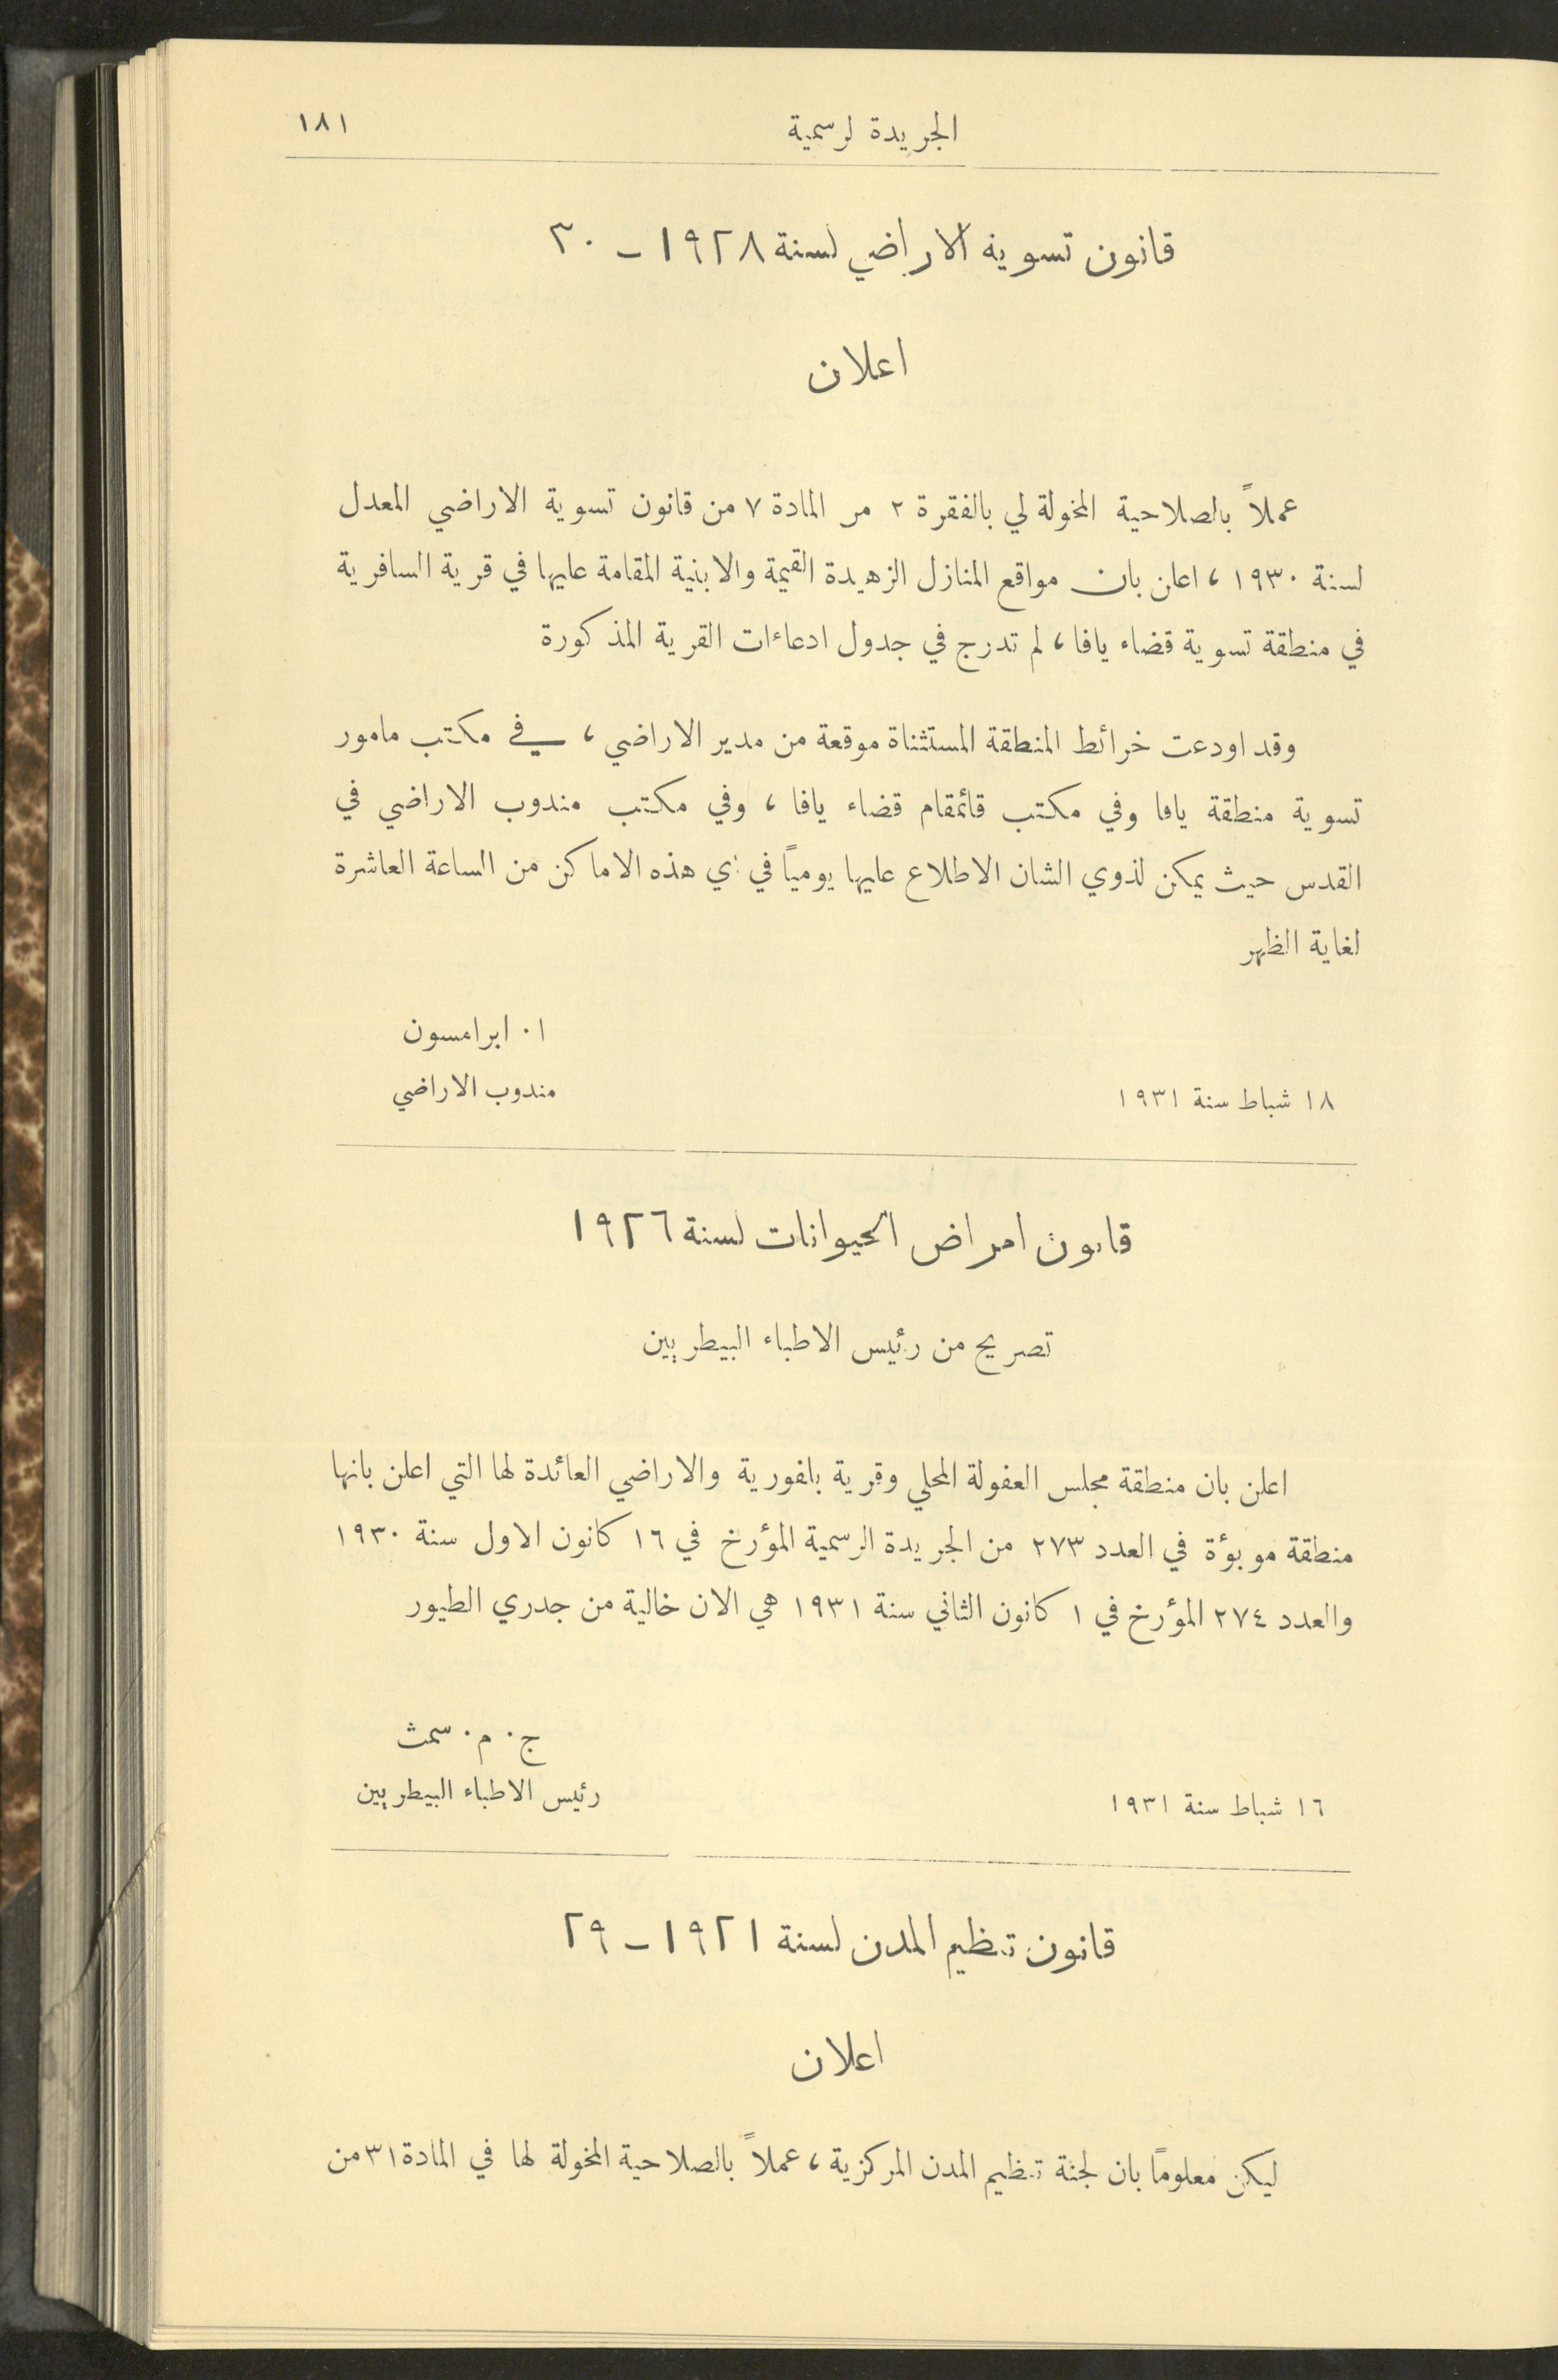 الجريدة لرسمية
١٨١
قانون تسوية الاراضي لسنة ١٩٢٨ - ٣٠
اعلان
عملاً بالصلاحية المخولة لي بالفقرة ٢ من المادة ٧ من قانون تسوية الاراضي المعدل
لسنة ١٩٣٠ ، اعلن بان مواقع المنازل الزهيدة القيمة والابنية المقامة عليها في قرية السافرية
في منطقة تسوية قضاء يافا ، لم تدرج في جدول ادعاءات القرية المذكورة
وقد اودعت خرائط المنطقة المستثناة موقعة من مدير الاراضي ، في مكتب مامور
تسوية منطقة يافا وفي مكتب قائمقام قضاء يافا ، وفي مكتب مندوب الاراضي في
القدس حيث يمكن لذوي الشان الاطلاع عليها يومياً في اي هذه الاماكن من الساعة العاشرة
لغاية الظهر
ا. ابرامسون
مندوب الاراضي
١٨ شباط سنة ١٩٣١
قانون امراض الحيوانات لسنة ١٩٢٦
تصريح من رئيس الاطباء البيطريين
اعلن بان منطقة مجلس العفولة المحلي وقرية بلفورية والاراضي العائدة لها التي اعلن بانها
منطقة موبوؤة في العدد ٢٧٣ من الجريدة الرسمية المؤرخ في ١٦ كانون الاول سنة ١٩٣٠
والعدد ٢٧٤ المؤرخ في ١ كانون الثاني سنة ١٩٣١ هي الان خالية من جدري الطيور
ج. م. سمث
رئيس الاطباء البيطريين
١٦ شباط سنة ١٩٣١
قانون تنظيم المدن لسنة ١٩٢١ - ٢٩
اعلان
ليكن معلوماً بان لجنة تنظيم المدن المركزية ، عملاً بالصلاحية المخولة لها في المادة ٣١ من